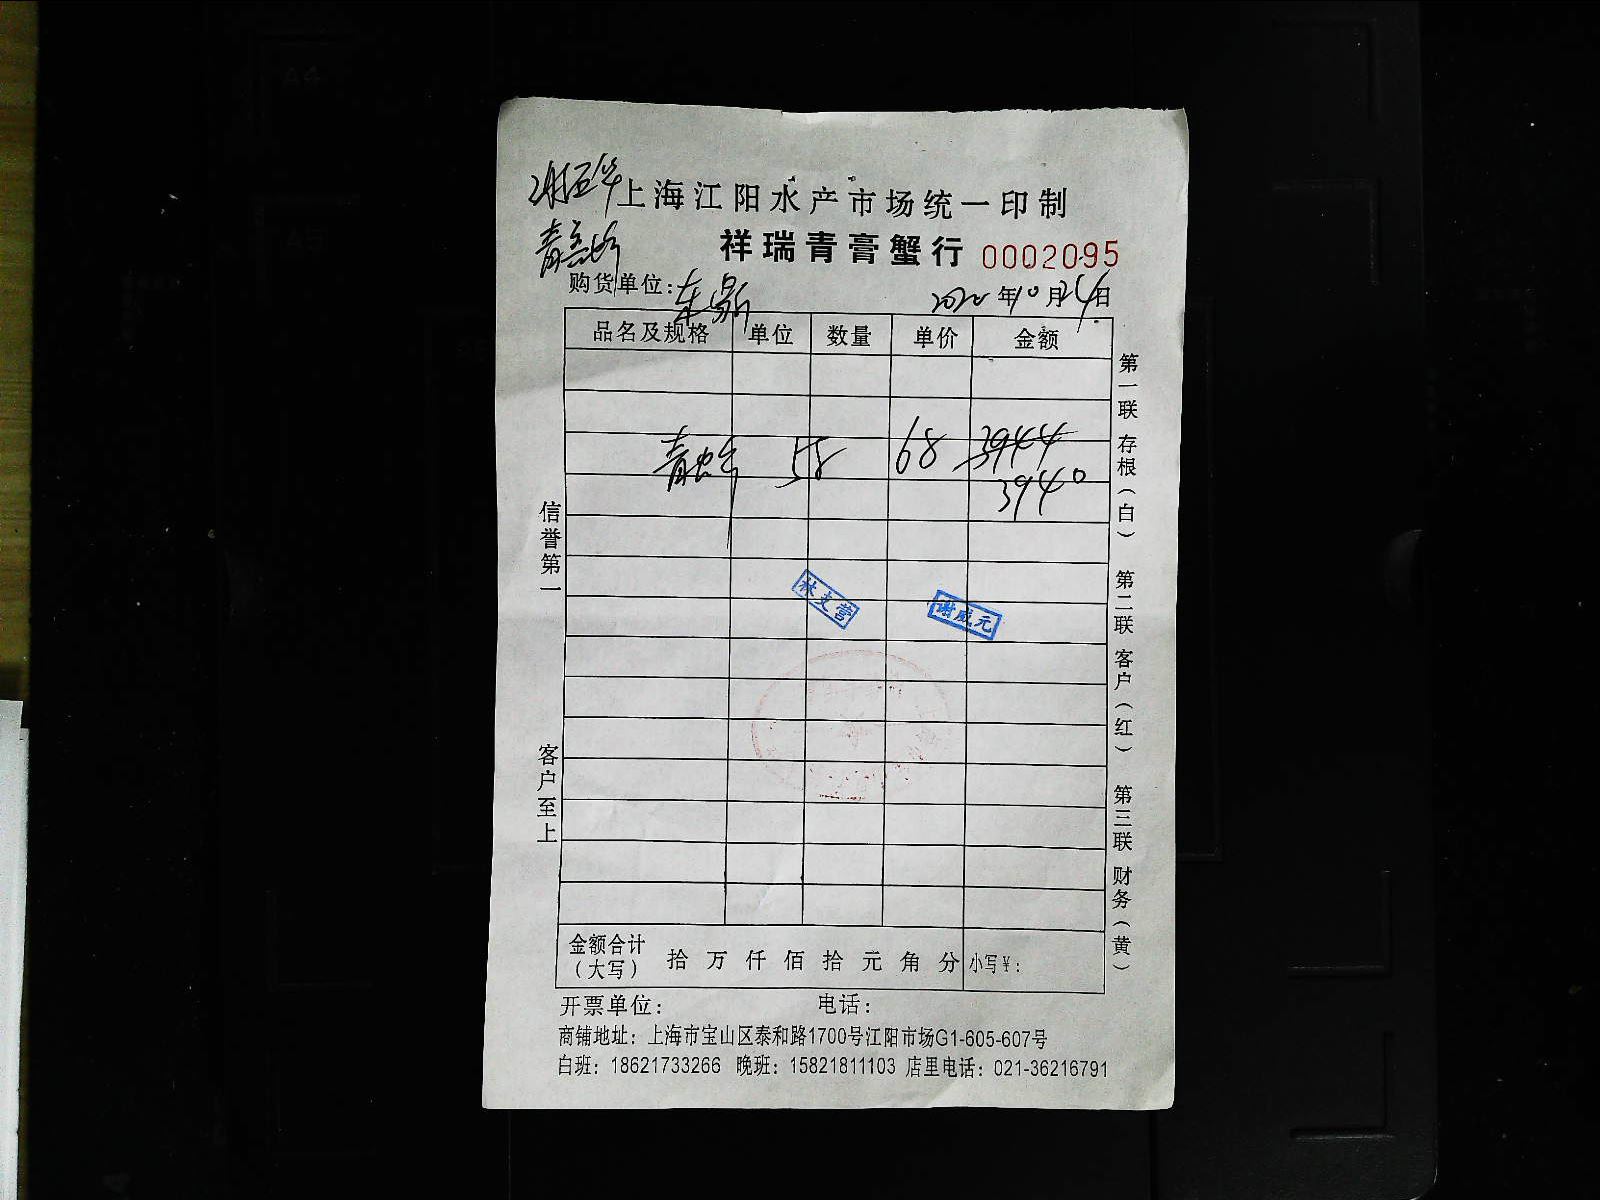 上海江阳水产市场统一印制
祥瑞青膏蟹行 0002095
购货单位：
年10月24日
品名及规格 单位 数量 单价 金额
青 58 68 3944
3940
信誉第一
客户至上
林支营
谢威元
第一联 存根（白） 第二联 客户（红） 第三联 财务（黄）
金额合计（大写） 拾 万 仟 佰 拾 元 角 分 小写￥：
开票单位： 电话：
商铺地址：上海市宝山区泰和路1700号江阳市场G1-605-607号
白班：18621733266 晚班：15821811103 店里电话：021-36216791